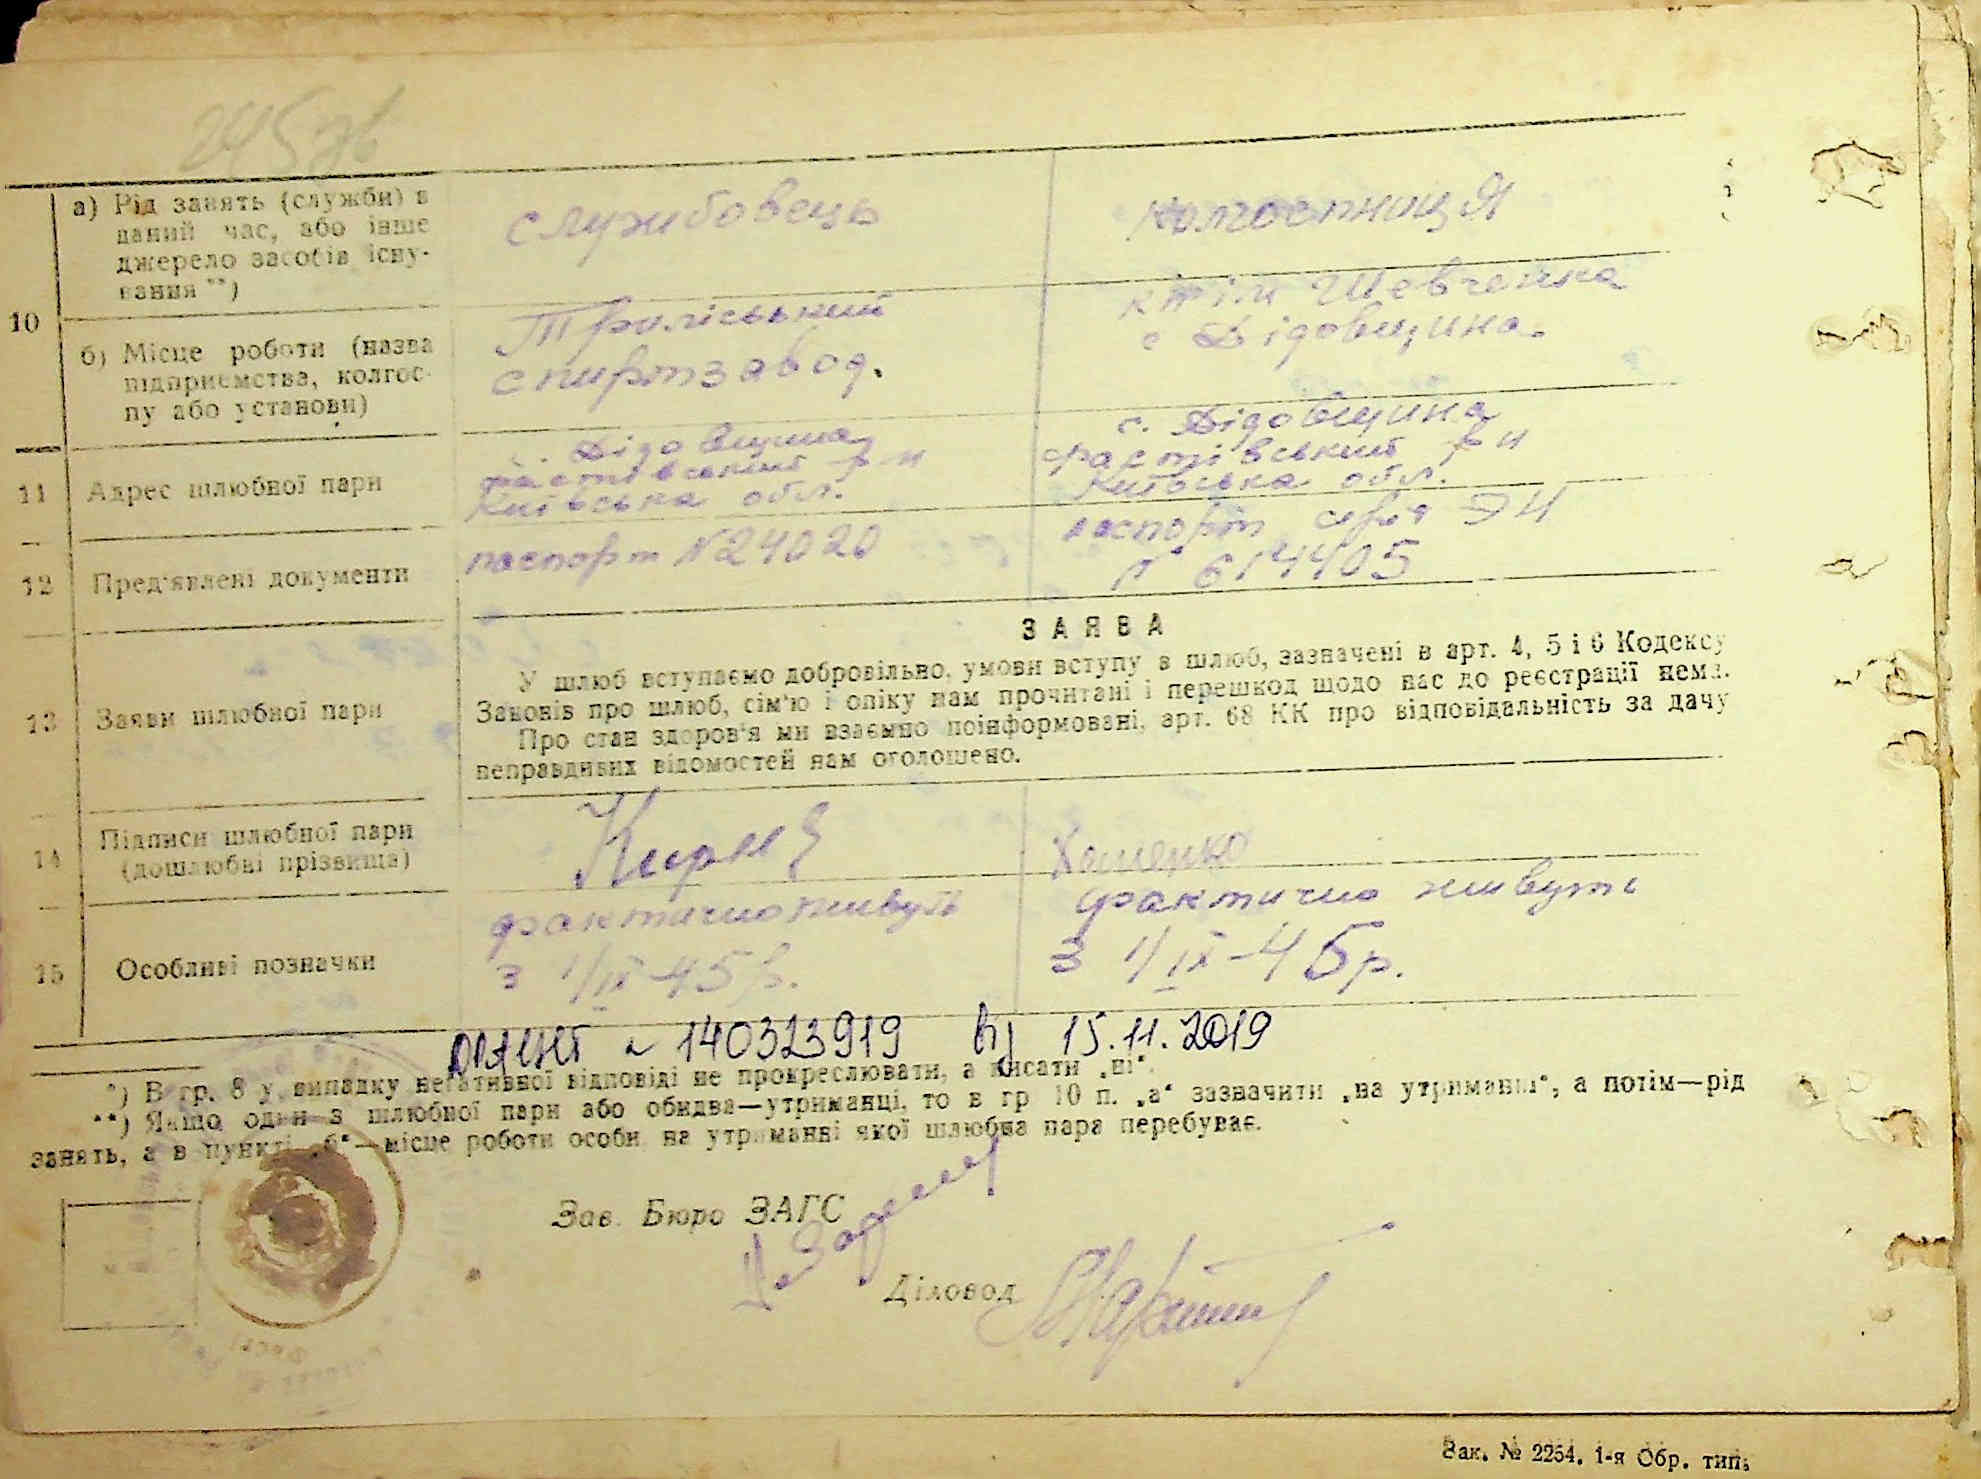 245 зв
10
а) Рід занять (служби) в
даний час, або інше
джерело засобів існу-
вання **)
службовець
колгоспниця
б) Місце роботи (назва
підприємства, колгос-
пу або установи)
Триліський
спиртзавод.
к-п ім Шевченка
с Дідовщина.
11 Адрес шлюбної пари
с. Дідовщина
Фастівський р-н
Київська обл.
с. Дідовщина
Фастівський р-н
Київська обл.
12 Пред'явлені документи
паспорт № 24020
паспорт серія
№ 614405
13 Заяви шлюбної пари
ЗАЯВА
У шлюб вступаємо добровільно, умови вступу в шлюб, зазначені в арт. 4, 5 і 6 Кодексу
Законів про шлюб, сім'ю і опіку нам прочитані і перешкод щодо нас до реєстрації нема.
Про стан здоров'я ми взаємно поінформовані, арт. 68 КК про відповідальність за дачу
неправдивих відомостей нам оголошено.
14 Підписи шлюбної пари
(дошлюбні прізвища)
15 Особливі позначки
фактично живуть
з 1/IX-45 р.
фактично живуть
з 1/IX-45 р.
140323919 від 15.11.2019
*) В гр. 8 у випадку негативної відповіді не прокреслювати, а писати „ні“.
**) Якщо один з шлюбної пари або обидва—утриманці, то в гр 10 п. „а“ зазначити „на утриманні“, а потім—рід
занять, а в пункті „б“—місце роботи особи на утриманні якої шлюбна пара перебуває.
Зав. Бюро ЗАГС
Діловод
Зак. № 2254. 1-я Обр. тип.